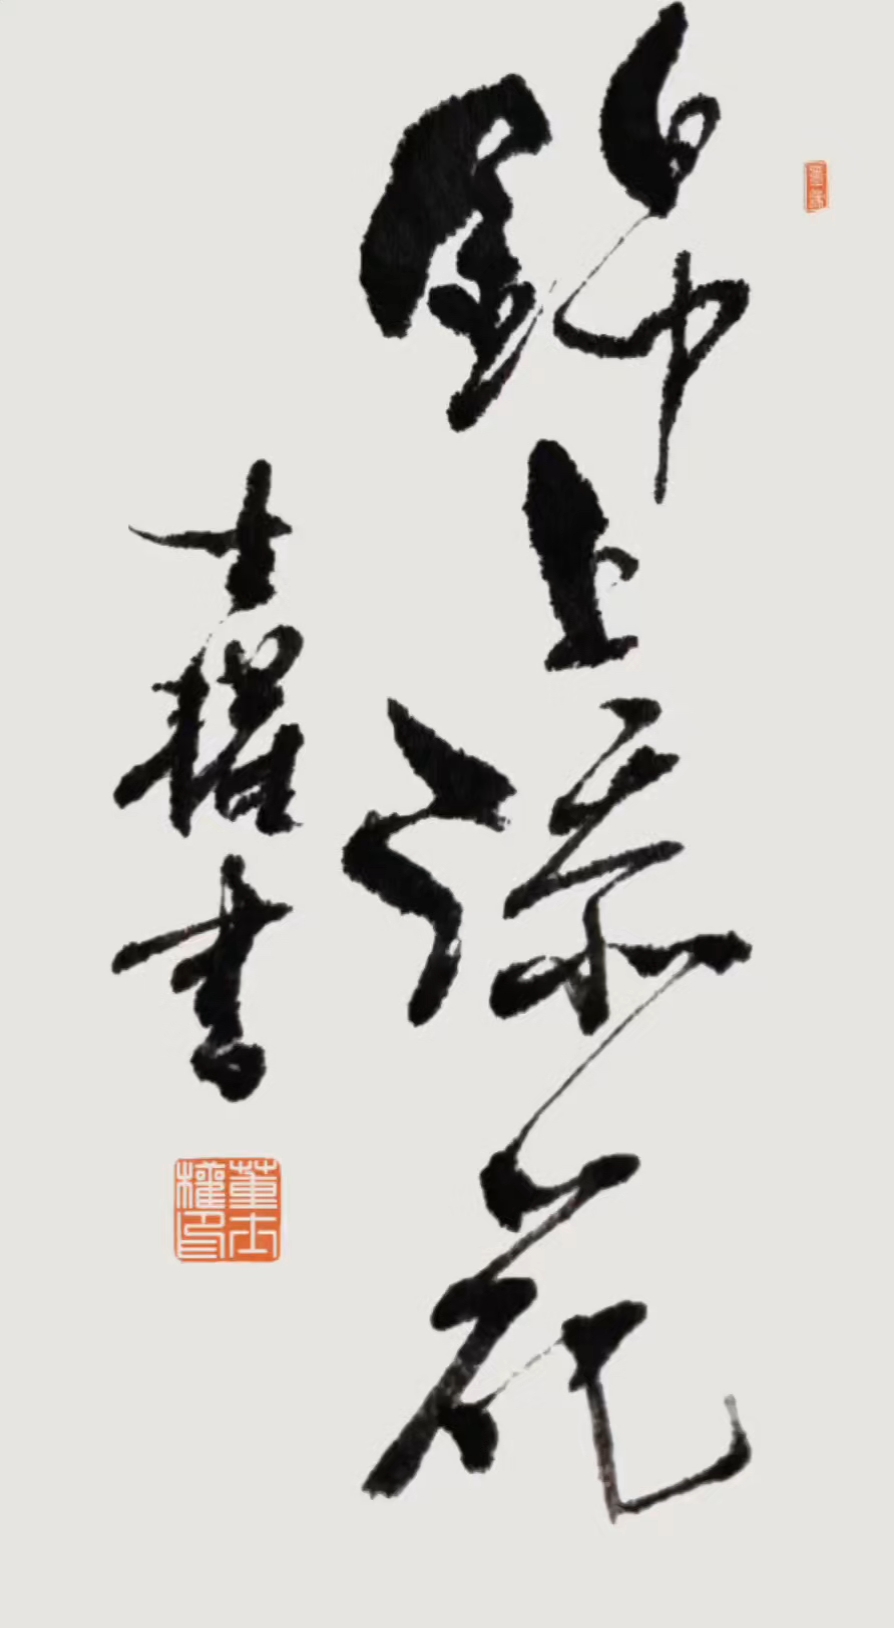 錦上添花
士權書
董士權印